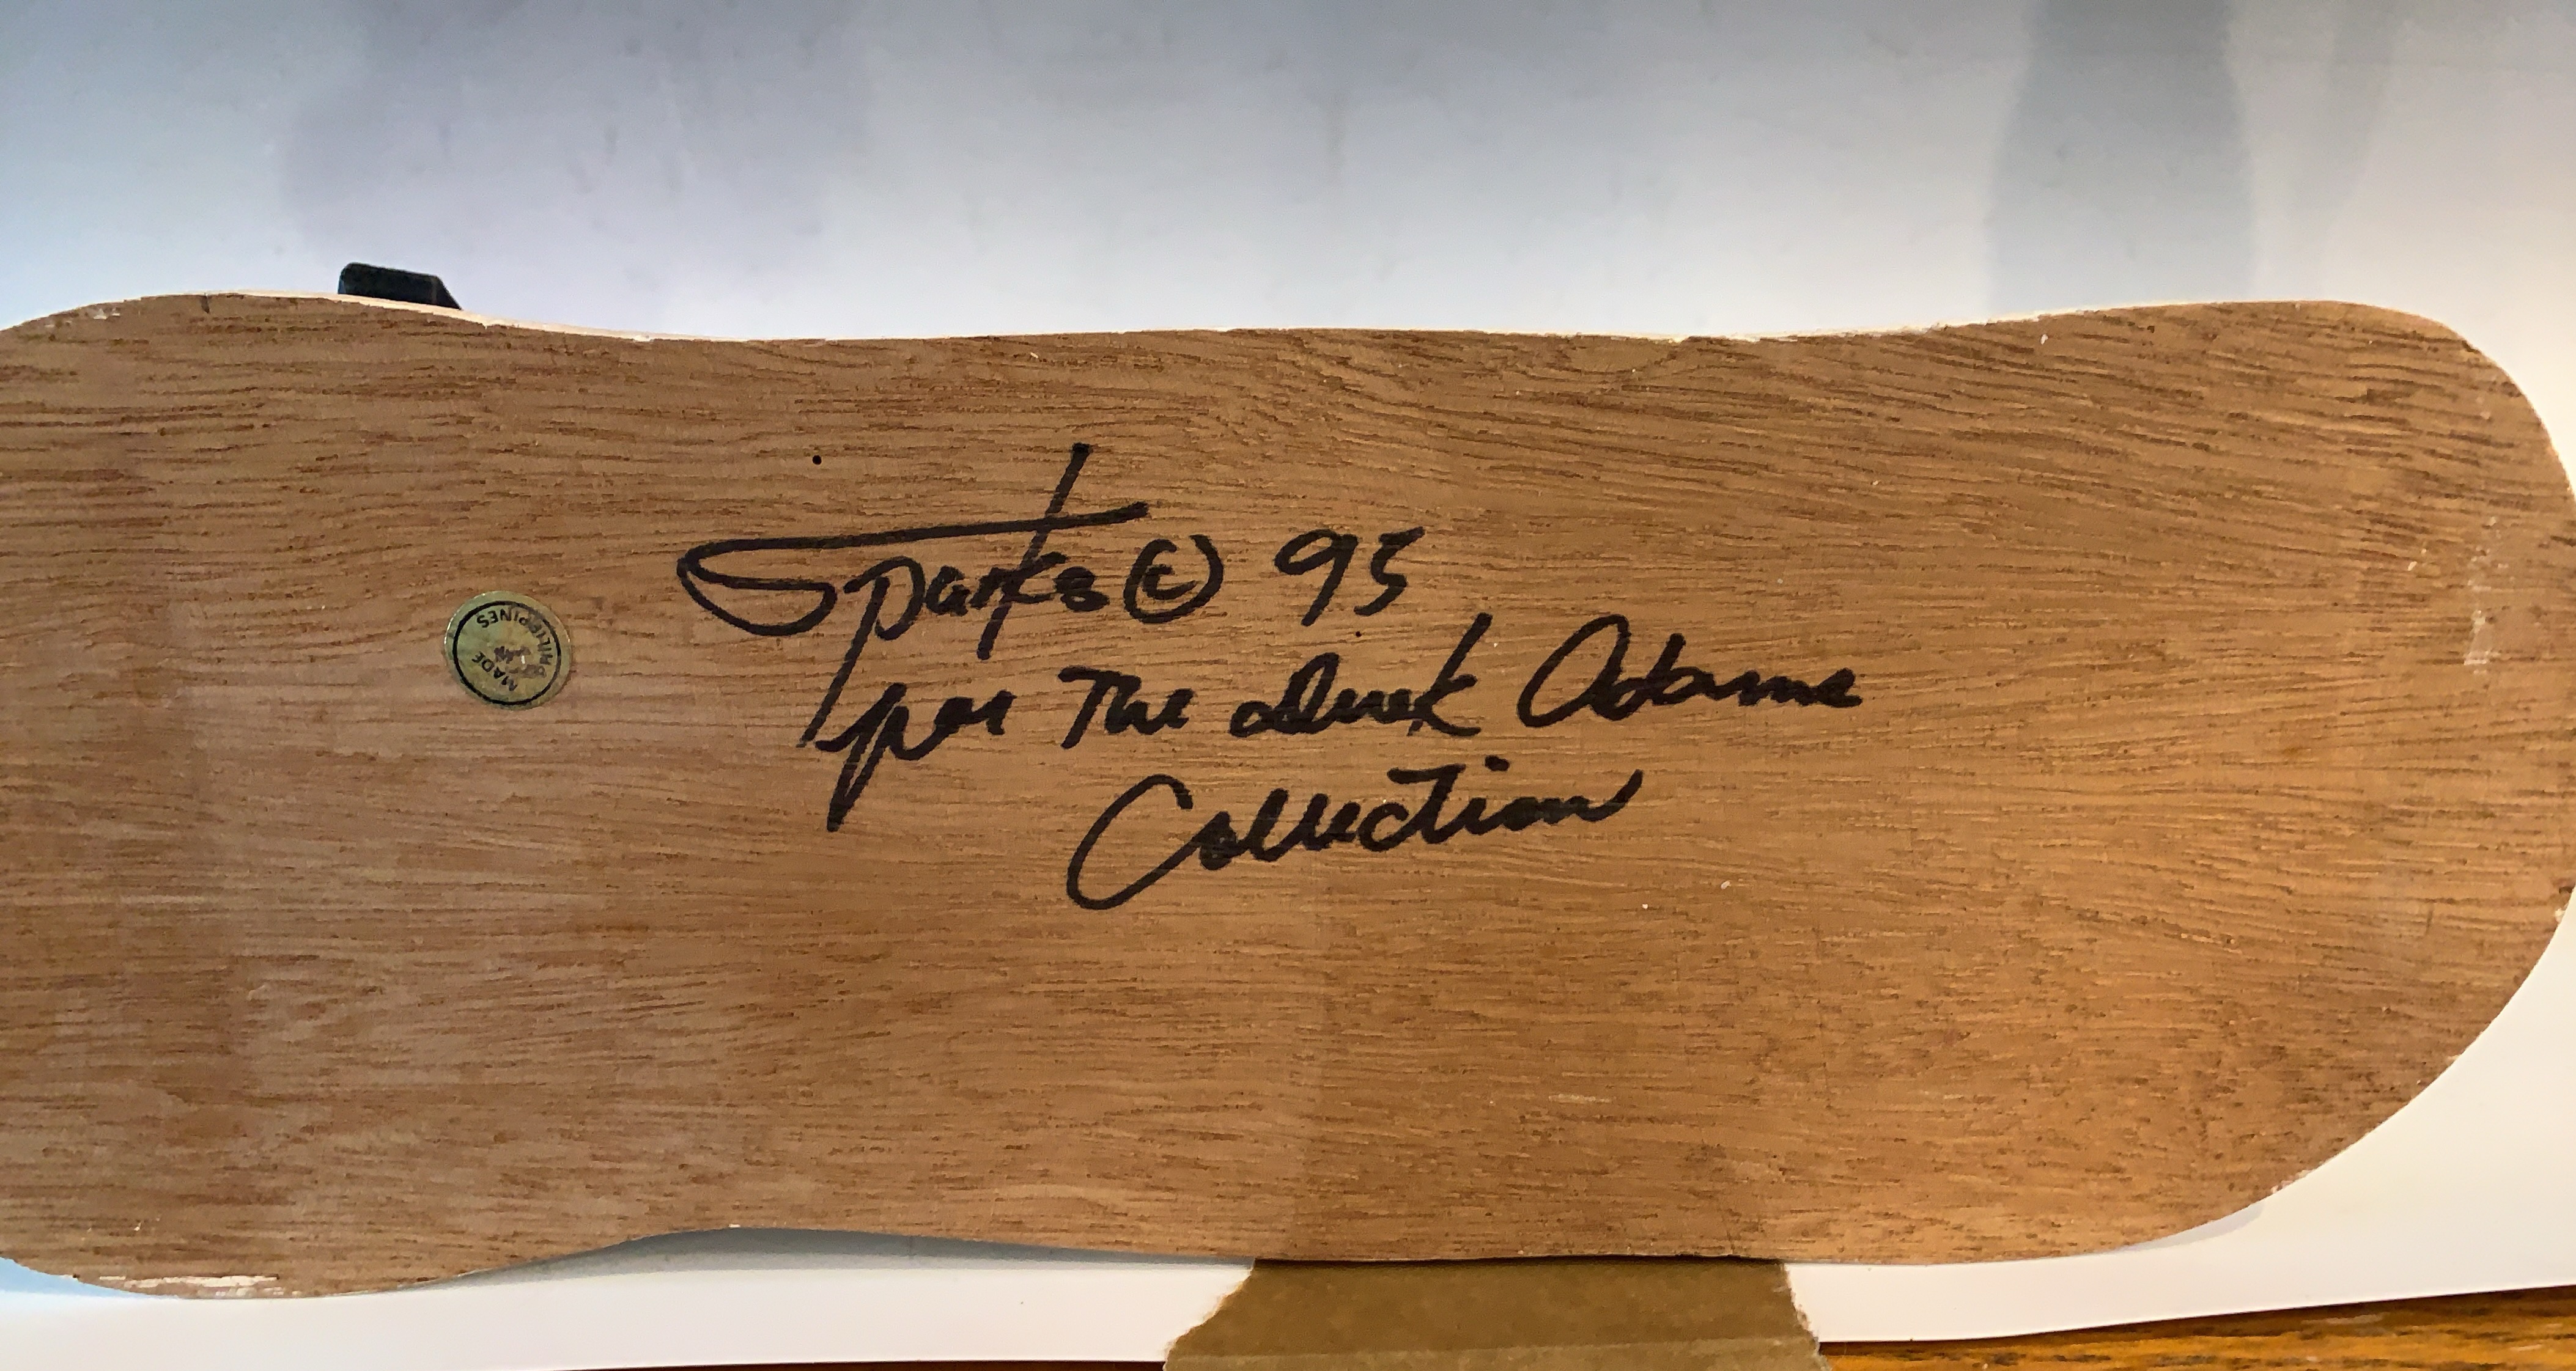 Sparks © 95
for The Derek Adams
Collection
MADE
IN
PHILIPPINES